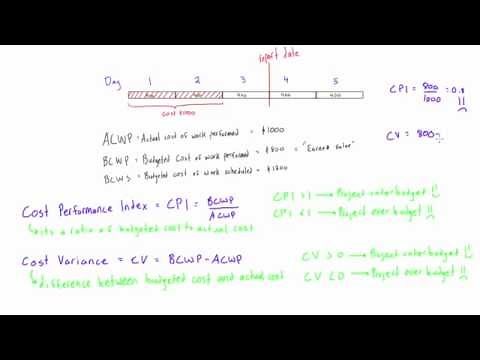 report date
Day 1 2 3 4 5
400 400 400 400 400
cost $1000
ACWP = Actual cost of work performed = $1000
BCWP = Budgeted cost of work performed = $800 = "Earned value"
BCWS = Budgeted cost of work scheduled =
CPI = 800/1000 = 0.8
CV = 800-
Cost Performance Index = CPI = BCWP/ACWP
its a ratio of budgeted cost to actual cost
CPI >1 → Project under budget
CPI <1 → Project over budget
Cost Variance = CV = BCWP-ACWP
difference between budgeted cost and actual cost
CV > 0 → Project under budget
CV < 0 → Project over budget